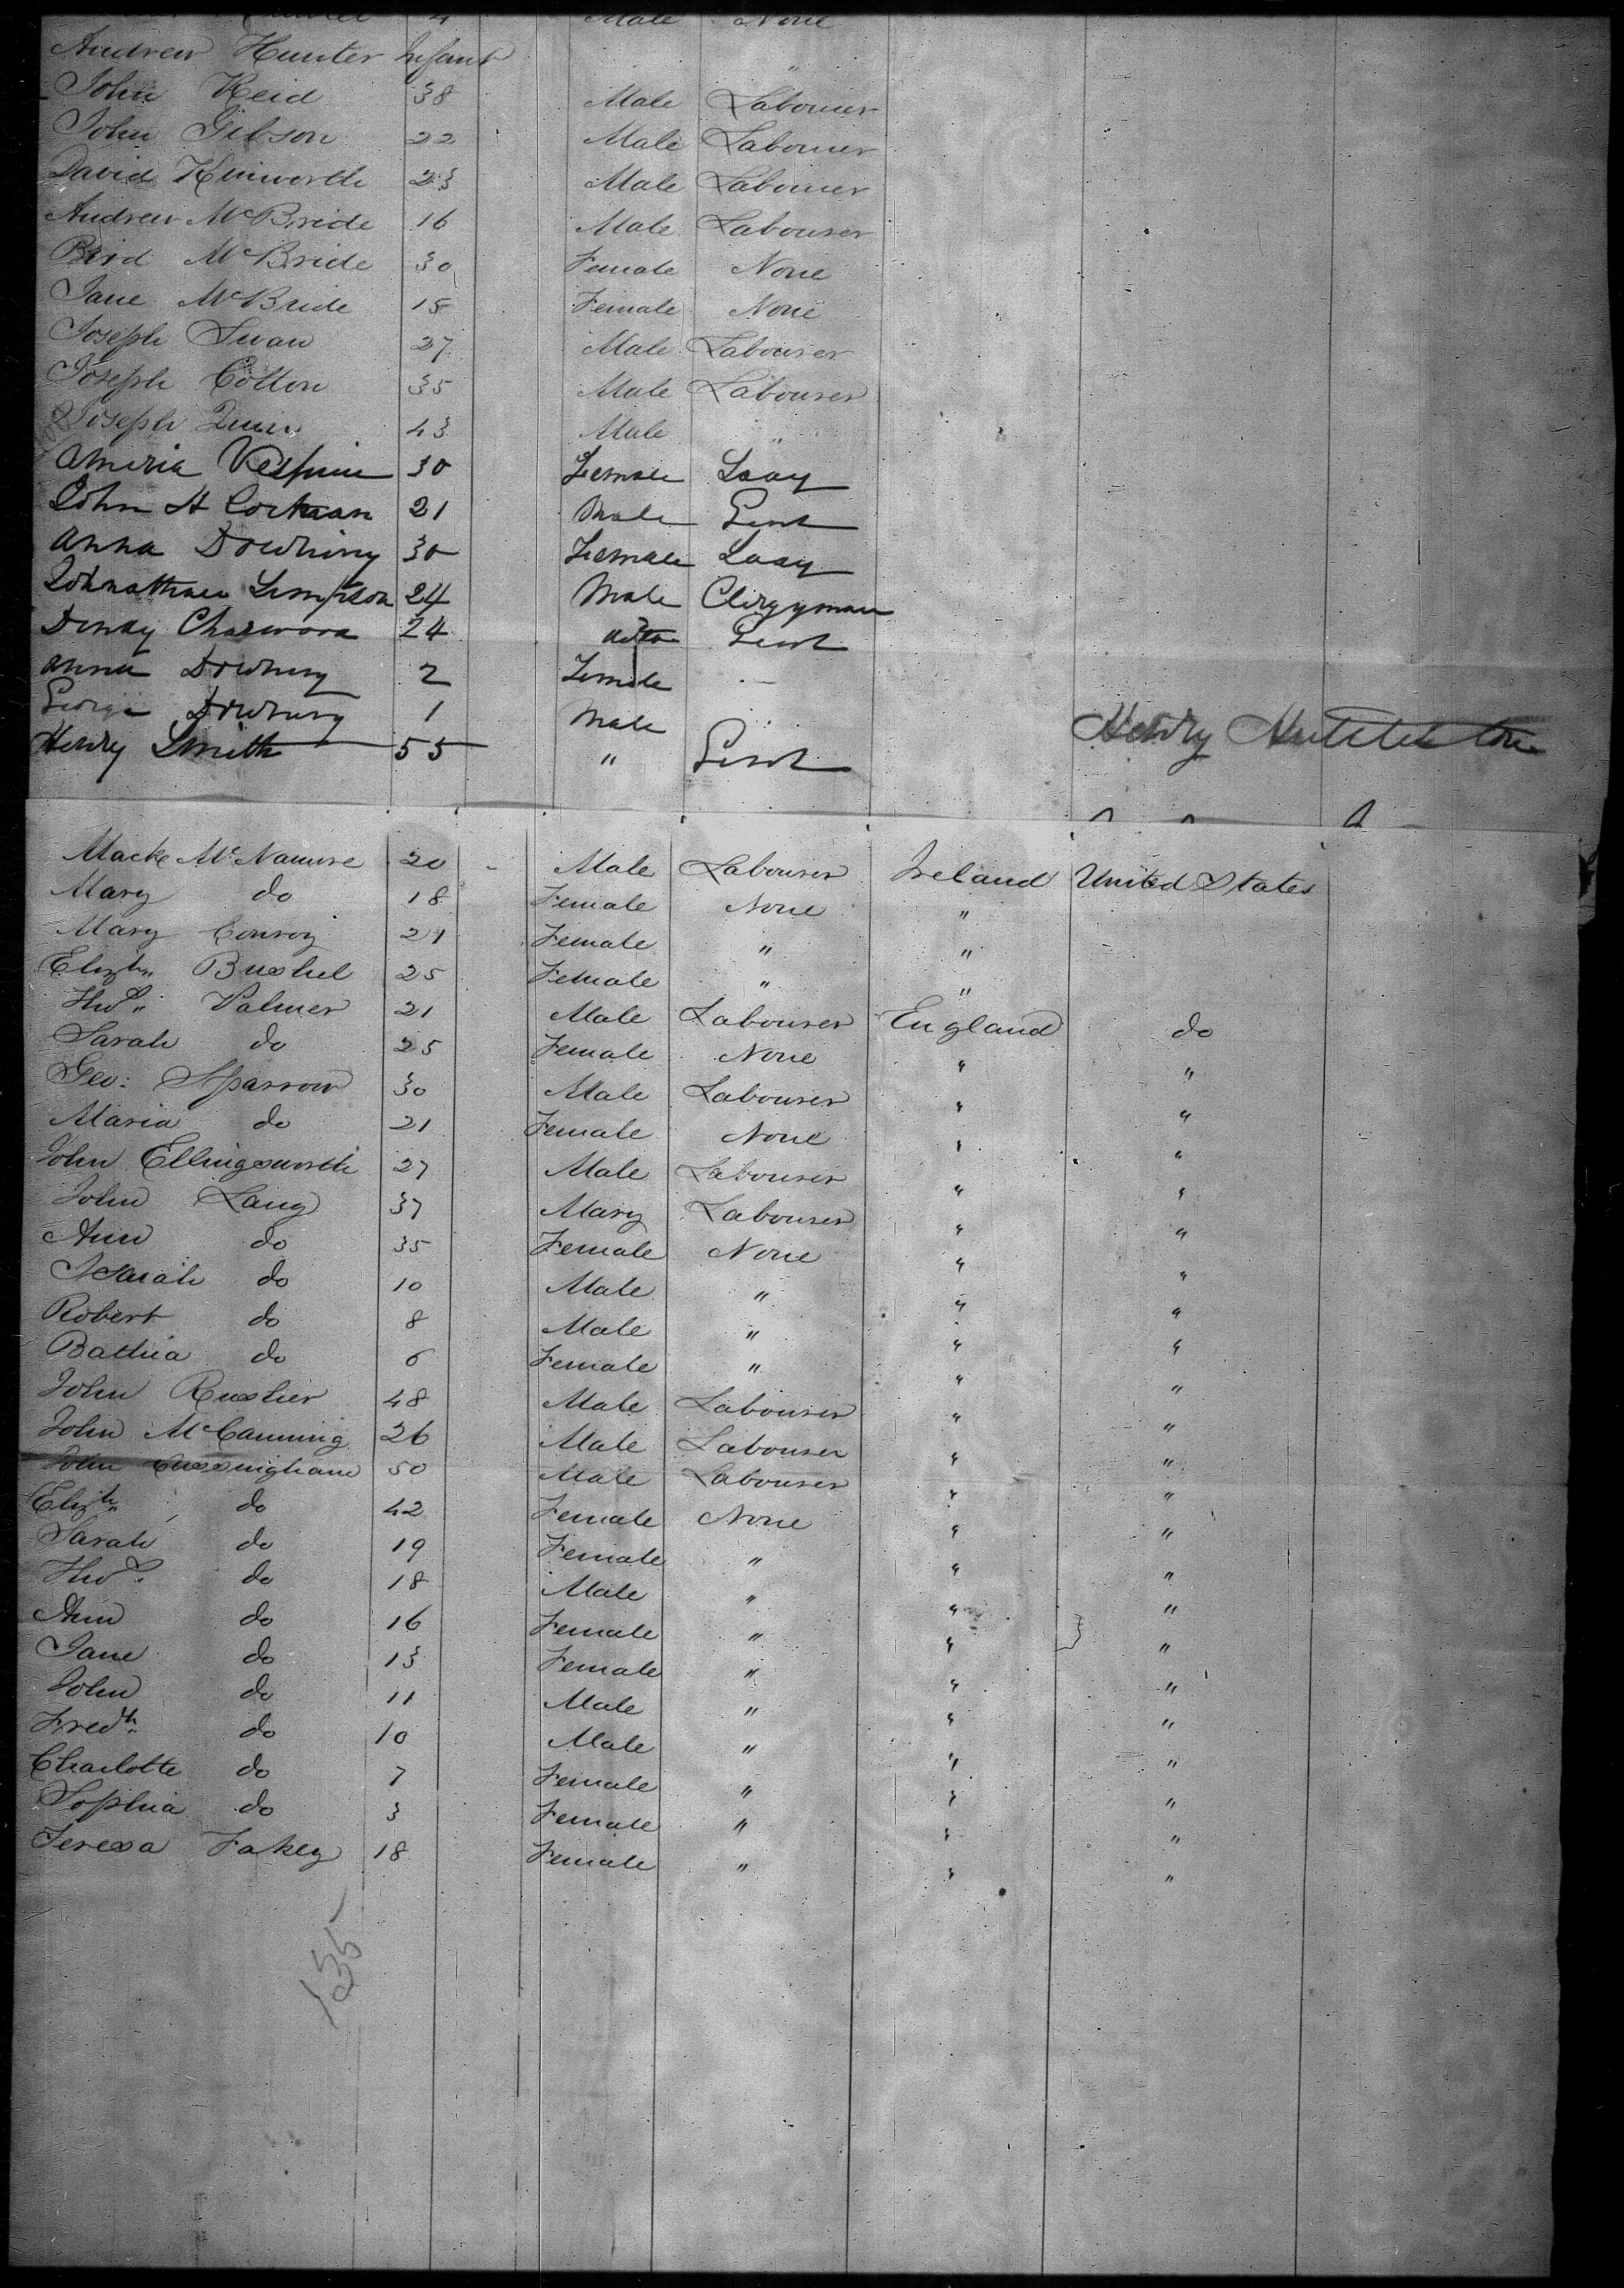 4 Male None
Andrew Hunter Infant "
John Reid 38 Male Labourer
John Gibson 22 Male Labourer
David Kenworth 23 Male Labourer
Andrew McBride 16 Male Labourer
Bird McBride 30 Female None
Jane McBride 15 Female None
Joseph Swan 27 Male Labourer
Joseph Cotton 35 Male Labourer
Joseph Quin 43 Male "
Ameria 30 Female Lady
John H Corkran 21 Male Gent
Anna Downing 30 Female Lady
Johnathan Simpson 24 Male Clergyman
24 ditto Gent
Anna Downing 2 Female
George Downing 1 Male
Henry Smith 55 " Gent
Henry
Macke McNamre 20 Male Labourer Ireland United States
Mary do 18 Female None "
Mary Conroy 21 Female " "
Elizth Bushel 25 Female " "
Thos Palmer 21 Male Labourer England do
Sarah do 25 Female None " "
Geo: Sparrow 30 Male Labourer " "
Maria do 21 Female None " "
John Ellingsworth 27 Male Labourer " "
John Lang 37 Mary Labourer " "
Ann do 35 Female None " "
do 10 Male " " "
Robert do 8 Male " " "
Bathia do 6 Female " " "
John Rushier 48 Male Labourer " "
John McCanning 26 Male Labourer " "
John Cussingham 50 Male Labourer " "
Elizth do 42 Female None " "
Sarah do 19 Female " " "
Thos do 18 Male " " "
Ann do 16 Female " " "
Jane do 13 Female " " "
John do 11 Male " " "
Fredk do 10 Male " " "
Charlotte do 7 Female " " "
Sophia do 3 Female " " "
Teresa Fakey 18 Female " " "
155